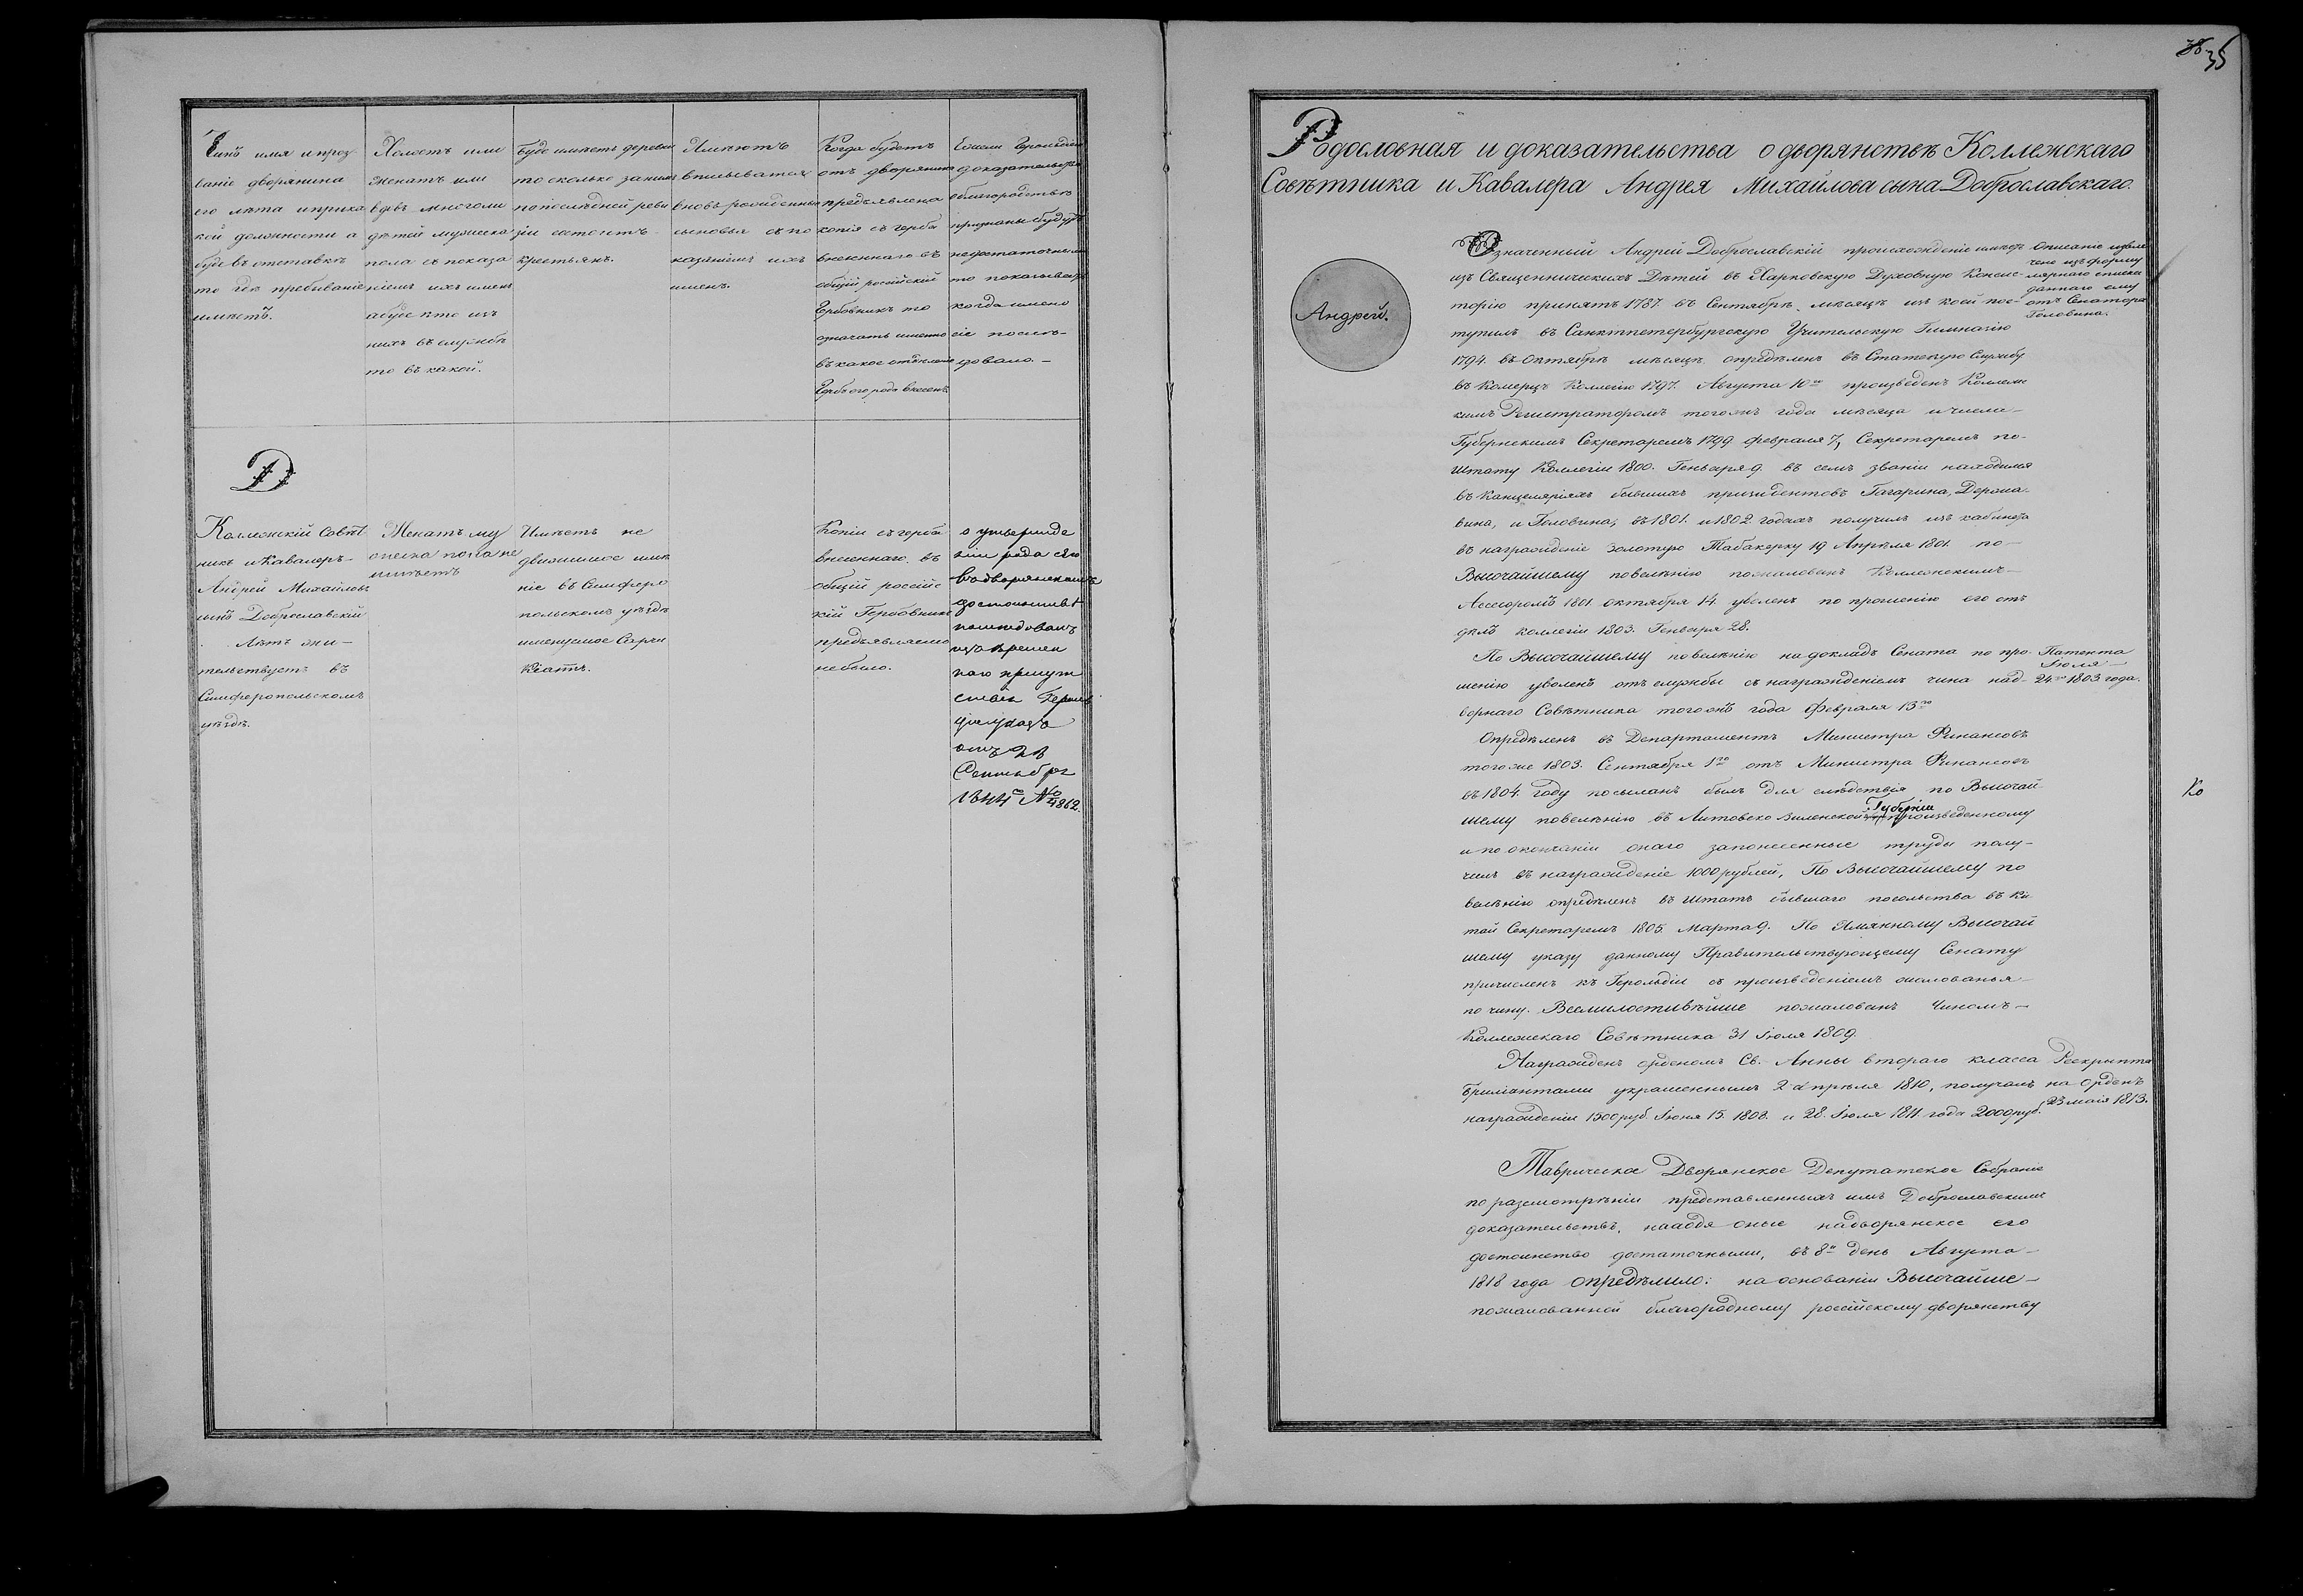 Чинъ имя и проз-
ваніе дворянина
его лѣта и при ка
кой должности а
буде въ отставкѣ
то гдѣ пребываніе
имѣетъ.
Холостъ или
женатъ или
вдовъ много ли
дѣтей мужеска
пола съ показа
ніемъ ихъ именъ
а буде кто изъ
нихъ въ службѣ
то въ какой.
буде имѣетъ деревни
то сколько за ним
по последней реви
зіи состоитъ
крестьянъ.
Имѣютъ
вписыватся
вновь рожденные
сыновья съ по
казаніемъ ихъ
именъ.
Когда будетъ
отъ дворянина
предъявлена
копія съ герба
внесеннаго въ
общій россійскій
Гербовникъ то
означать именно
въ какое отдѣленіе
Гербъ его рода внесенъ
Ежели Герольдіею
доказательства
о благородствѣ
признаны будутъ
недостаточными
то показывать
когда имено
сіе послѣ-
довало.
D
Колежскій Совѣт
никъ и Кавалеръ
Андрей Михайловъ
сынъ Доброславскій
Лѣтъ жи-
тельствуетъ въ
Симферопольскомъ
уѣздѣ.
Женатъ му
жеска пола не
имѣетъ
Имѣетъ не
движимое имѣ
ніе въ Симферо
польскомъ уѣздѣ
именуемое Сарчи
Кіатъ.
Копіи съ герба
внесеннаго въ
общій россійс
кій Гербовникъ
предъявляемо
не было.
о утвержде
ніи рода его
въ дворянскомъ
достоинствѣ
послѣдовалъ
изъ времен
наго присут
ствія Герольд
діи указъ
отъ 28
Сентября
1844 № 4862.
35
Родословная и доказательства о дворянствѣ Коллежскаго
Совѣтника и Кавалера Андрея Михайлова сына Доброславскаго.
Андрей.
Означенный Андрей Доброславскій происхожденіе имѣетъ
изъ Священническихъ Дѣтей въ Харковскую Духовную Консис-
торію принятъ 1787. въ Сентябрѣ мѣсяцѣ изъ коей пос-
тупилъ въ Санктпетербургскую Учительскую Гимназію
1794. въ Октябрѣ мѣсяцѣ опредѣленъ въ Статскую Службу
въ Комерцъ Коллегію 1797. Августа 10го произведенъ Коллеж
кимъ Регистраторомъ того жъ года мѣсяца и числа
Губернскимъ Секретаремъ 1799 февраля 7, Секретаремъ по-
штату Коллегіи 1800. Генваря 9 въ семъ званіи находился
въ Канцеляріяхъ бывшихъ призидентовъ Гагарина, Держа-
вина, и Головина, въ 1801. и 1802 годахъ получилъ изъ кабинета
въ награжденіе золотую Табакерку 19 Апрѣля 1801. по-
Высочайшему повелѣнію пожалованъ Коллежскимъ
Ассесоромъ 1801 октября 14. уволенъ по прошенію его отъ
дѣлъ коллегіи 1803. Генваря 28.
Описаніе извле
чено изъ форму
лярнаго списка
даннаго ему
отъ Сенатора
Головина.
По Высочайшему повелѣнію на докладъ Сената по про-
шенію уволенъ отъ службы съ награжденіемъ чина над-
ворнаго Совѣтника того жъ года Февраля 13го
Патента
Іюля
24го 1803 года.
Опредѣленъ въ Департаментъ Министра Финансовъ
того же 1803. Сентября 1го отъ Министра Финансовъ
въ 1804. году посыланъ былъ для слѣдствія по Высочай
шему повелѣнію въ Литовско Виленской Губерніи произведенному
и по окончаніи онаго за понесенные труды полу-
чилъ въ награжденіе 1000 рублей, По Высочайшему по
велѣнію опредѣленъ въ штатъ бывшаго посольства въ Ки-
тай Секретаремъ 1805. Марта 9. По Имянному Высочай
шему указу данному Правительствующему Сенату
причисленъ къ Герольдіи съ произведеніемъ жалованья
по чину. Всемилостивѣйше пожалованъ Чиномъ
Коллежскаго Совѣтника 31 Іюля 1809.
Ко
Награжденъ орденомъ Св. Анны втораго класса
бриліантами украшеннымъ 2 апрѣля 1810, получалъ
награжденіи 1500 руб. Іюня 15. 1808. и 28. Іюля 1811 года 2000 руб.
Рескрипта
на Орденъ
23 маія 1813.
Таврическое Дворянское Депутатское Собраніе
по разсмотрѣніи представленныхъ имъ Доброславскимъ
доказательствъ, находя оные на дворянское его
достоинство достаточными, въ 8й день Августа
1818 года опредѣлило: на основаніи Высочайше
пожалованной благородному россійскому дворянству